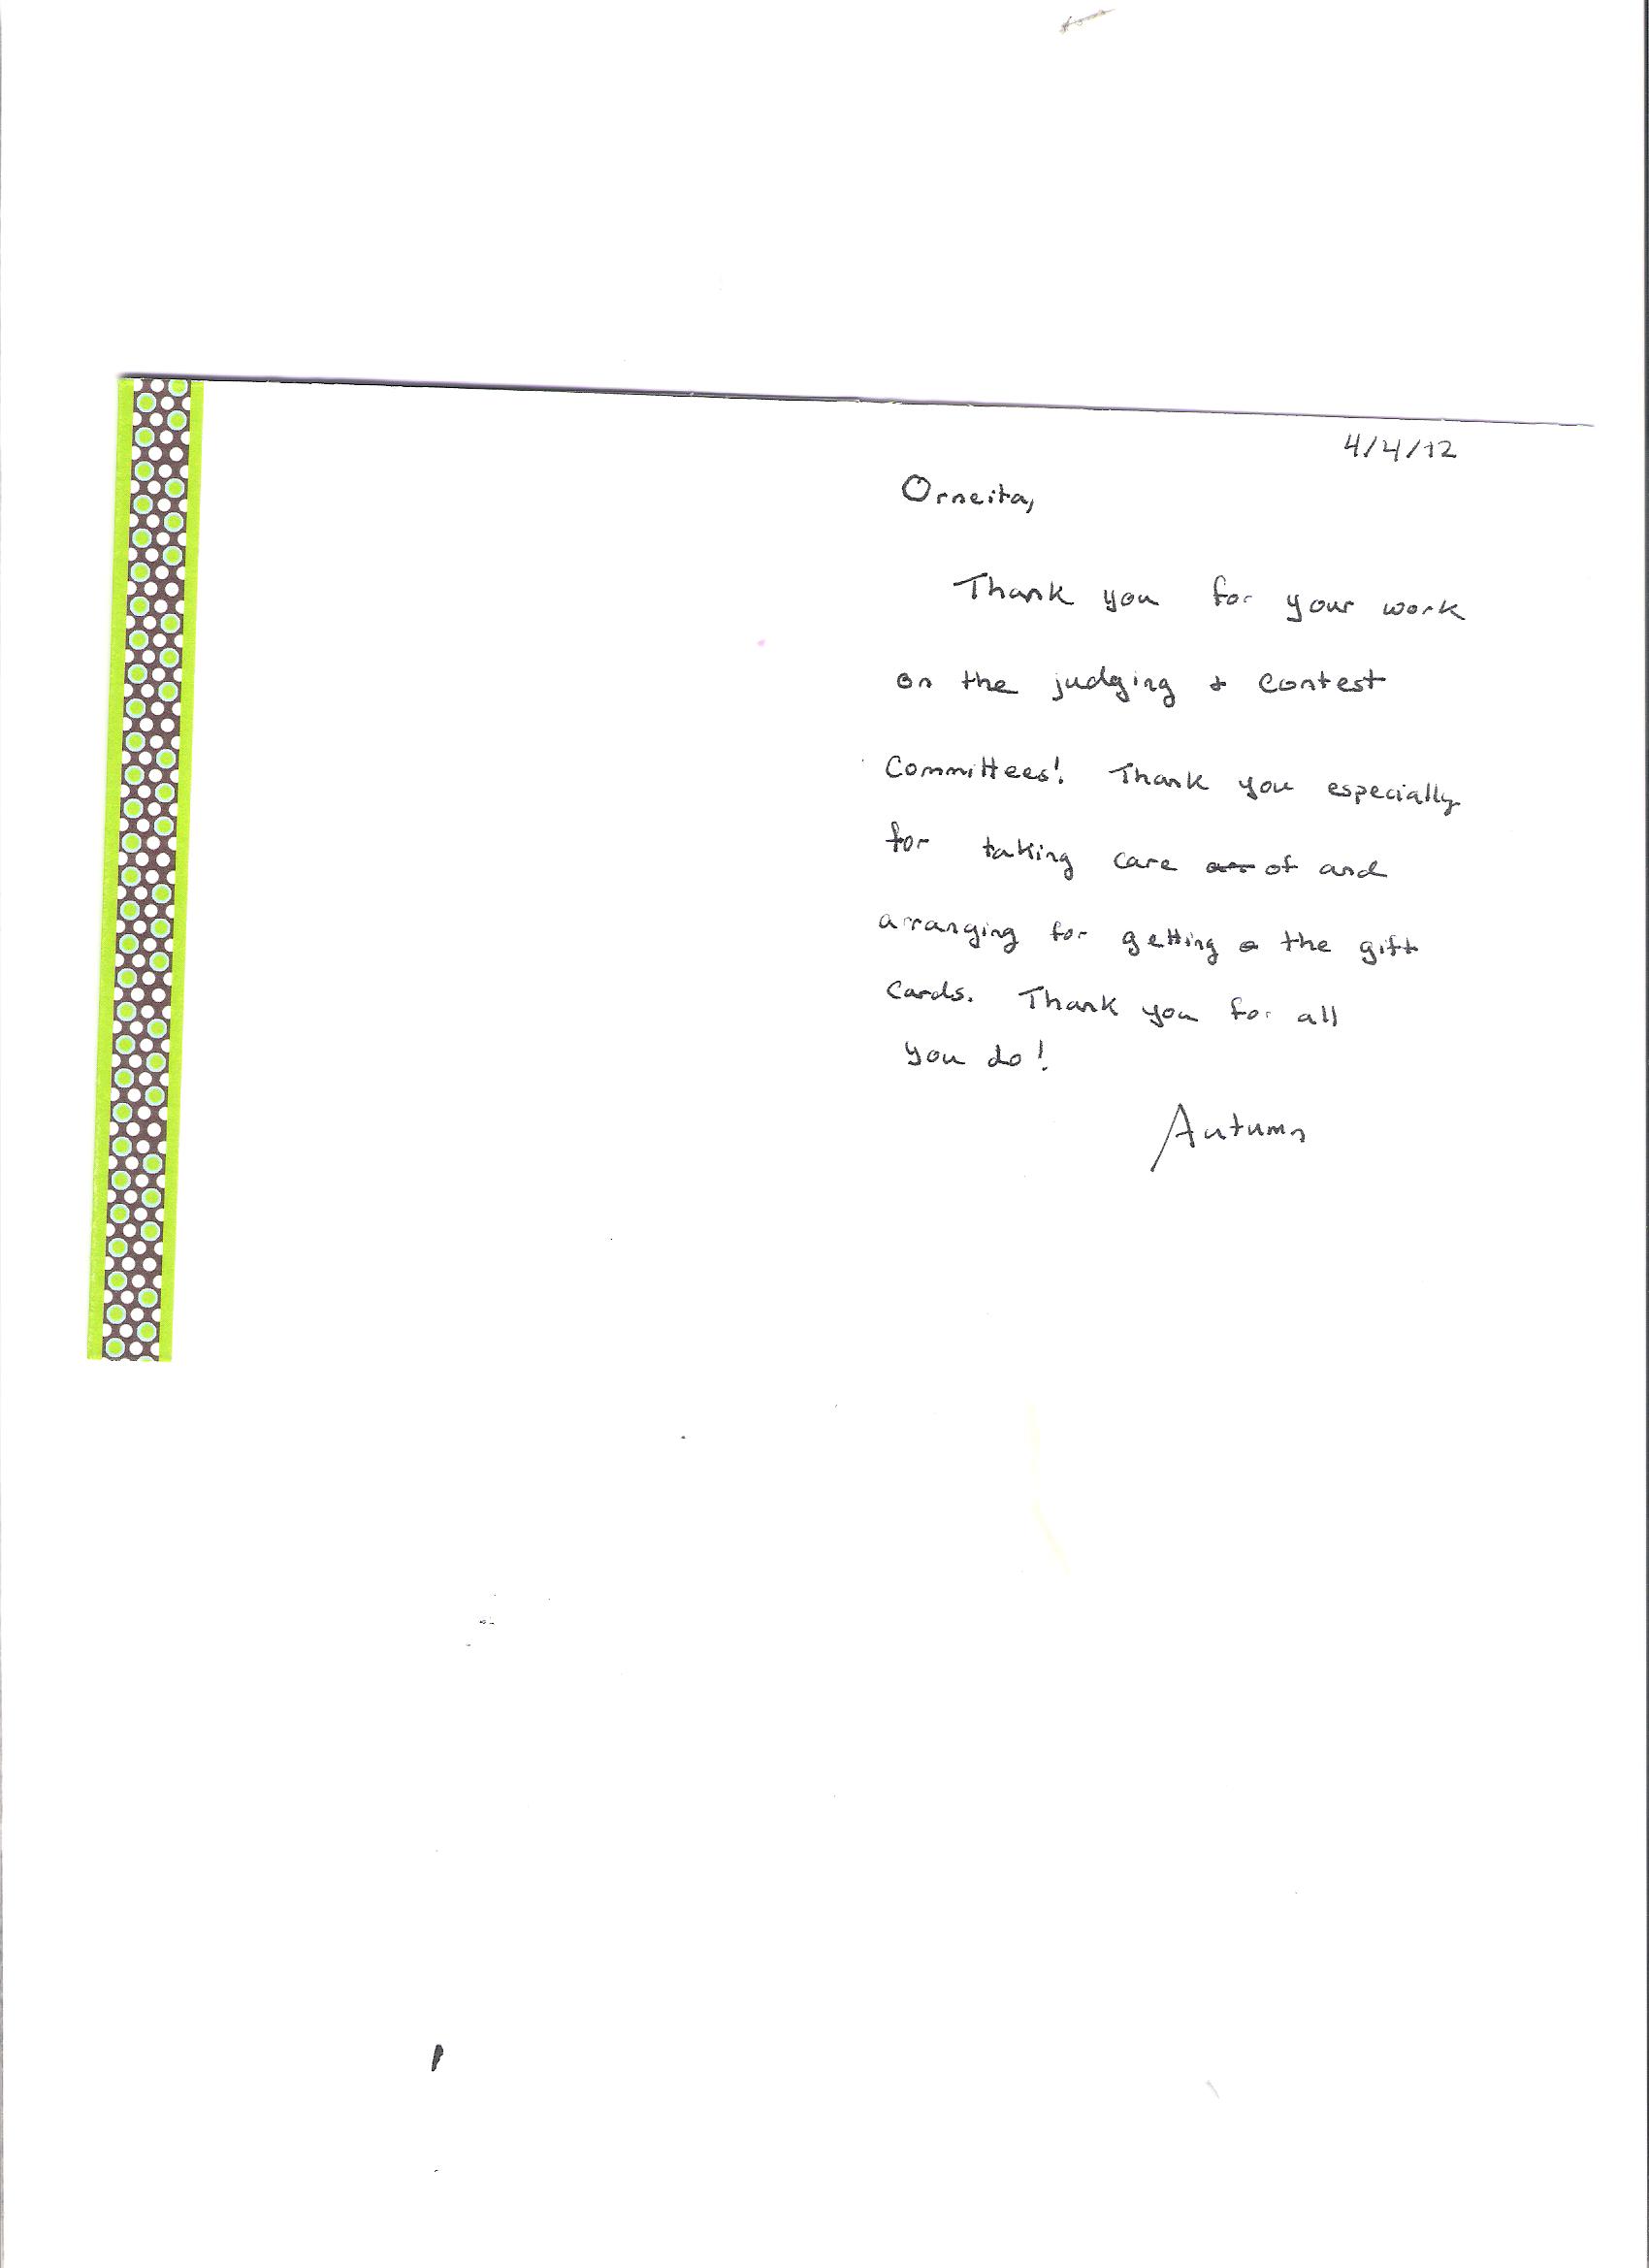 4/4/12
Orneita,
Thank you for your work
on the judging + contest
Committees! Thank you especially
for taking care of and
arranging for getting the gift
cards. Thank you for all
you do!
Autumn